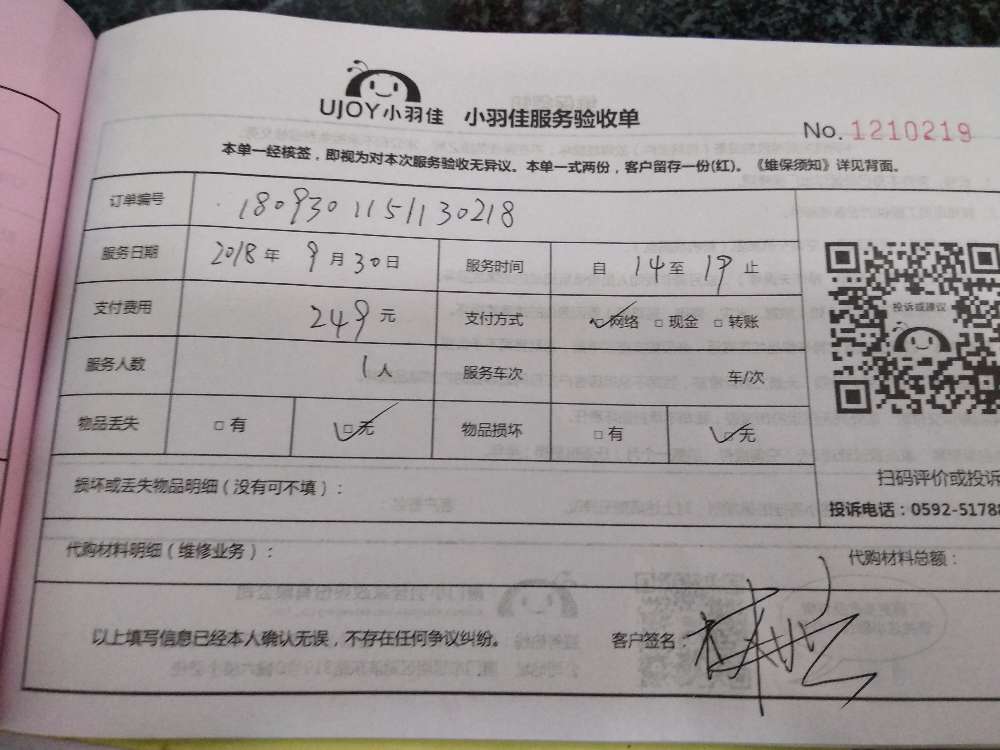 UJOY小羽佳 小羽佳服务验收单
No. 1210219
本单一经核签，即视为对本次服务验收无异议。本单一式两份，客户留存一份(红)。《维保须知》详见背面。
订单编号 1809301151130218
服务日期 2018年9月30日 服务时间 自14至17止
支付费用 249元 支付方式 ☑网络 □现金 □转账
投诉或建议
服务人数 1人 服务车次 车/次
物品丢失 □有 ☑无 物品损坏 □有 ☑无
扫码评价或投诉
损坏或丢失物品明细（没有可不填）：
投诉电话：0592-51788
代购材料明细（维修业务）： 代购材料总额：
以上填写信息已经本人确认无误，不存在任何争议纠纷。 客户签名：